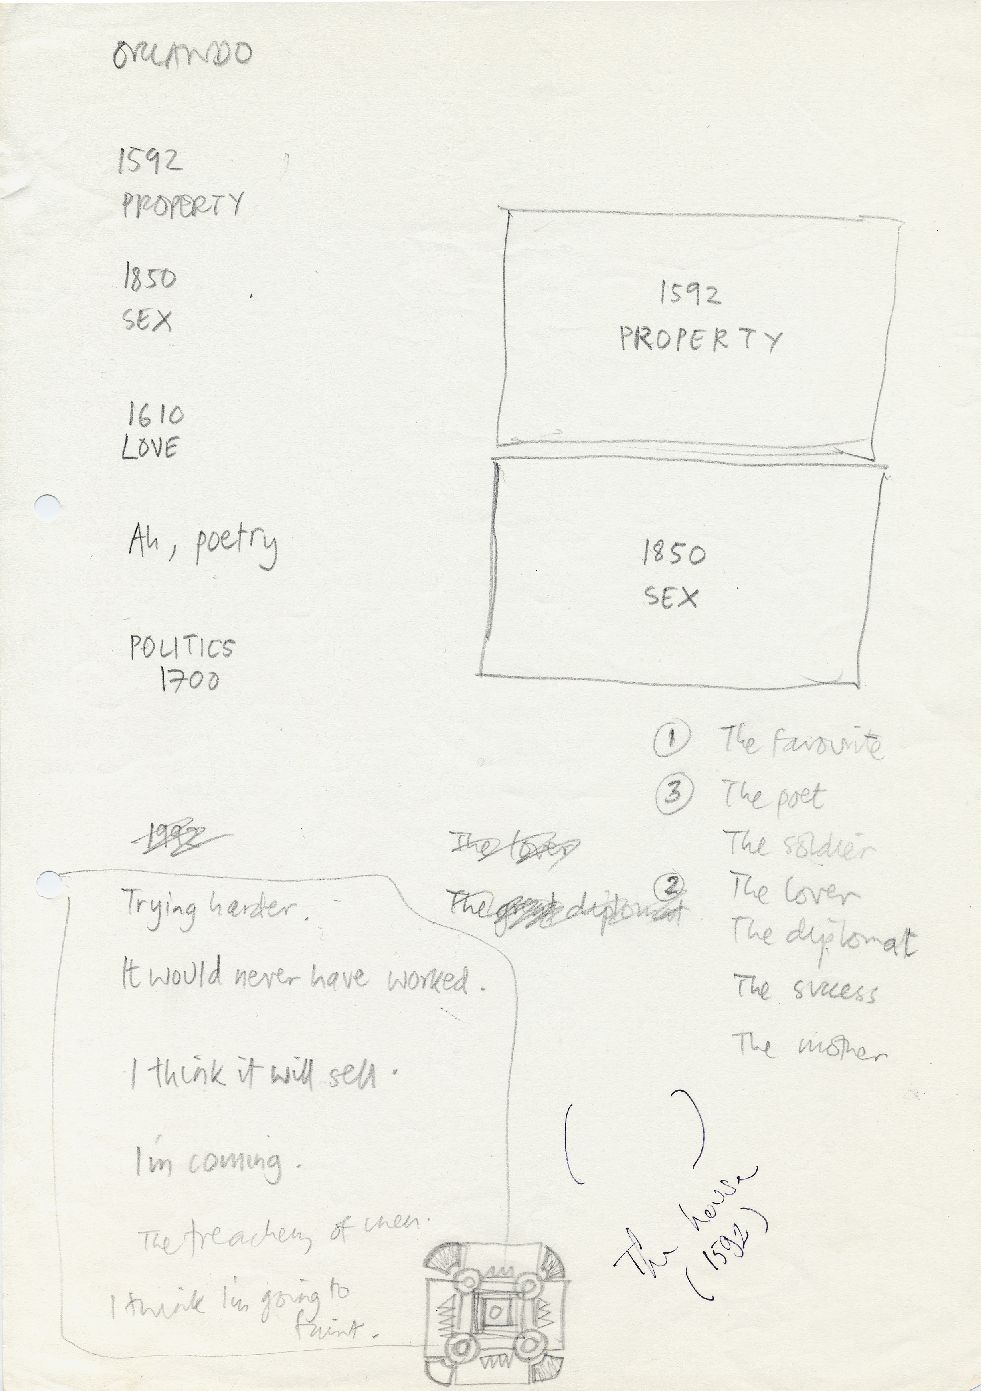 ORLANDO
1592
PROPERTY
1850
SEX
1610
LOVE
Ah, poetry
POLITICS
1700
1592
PROPERTY
1850
SEX
1 The favourite
3 The poet
The soldier
2 The lover
The diplomat
The success
The mother
1992
The lover
The great diplomat
Trying harder.
It would never have worked.
I think it will sell.
I'm coming.
The treachery of men.
I think I'm going to
faint.
( )
The house
(1592)